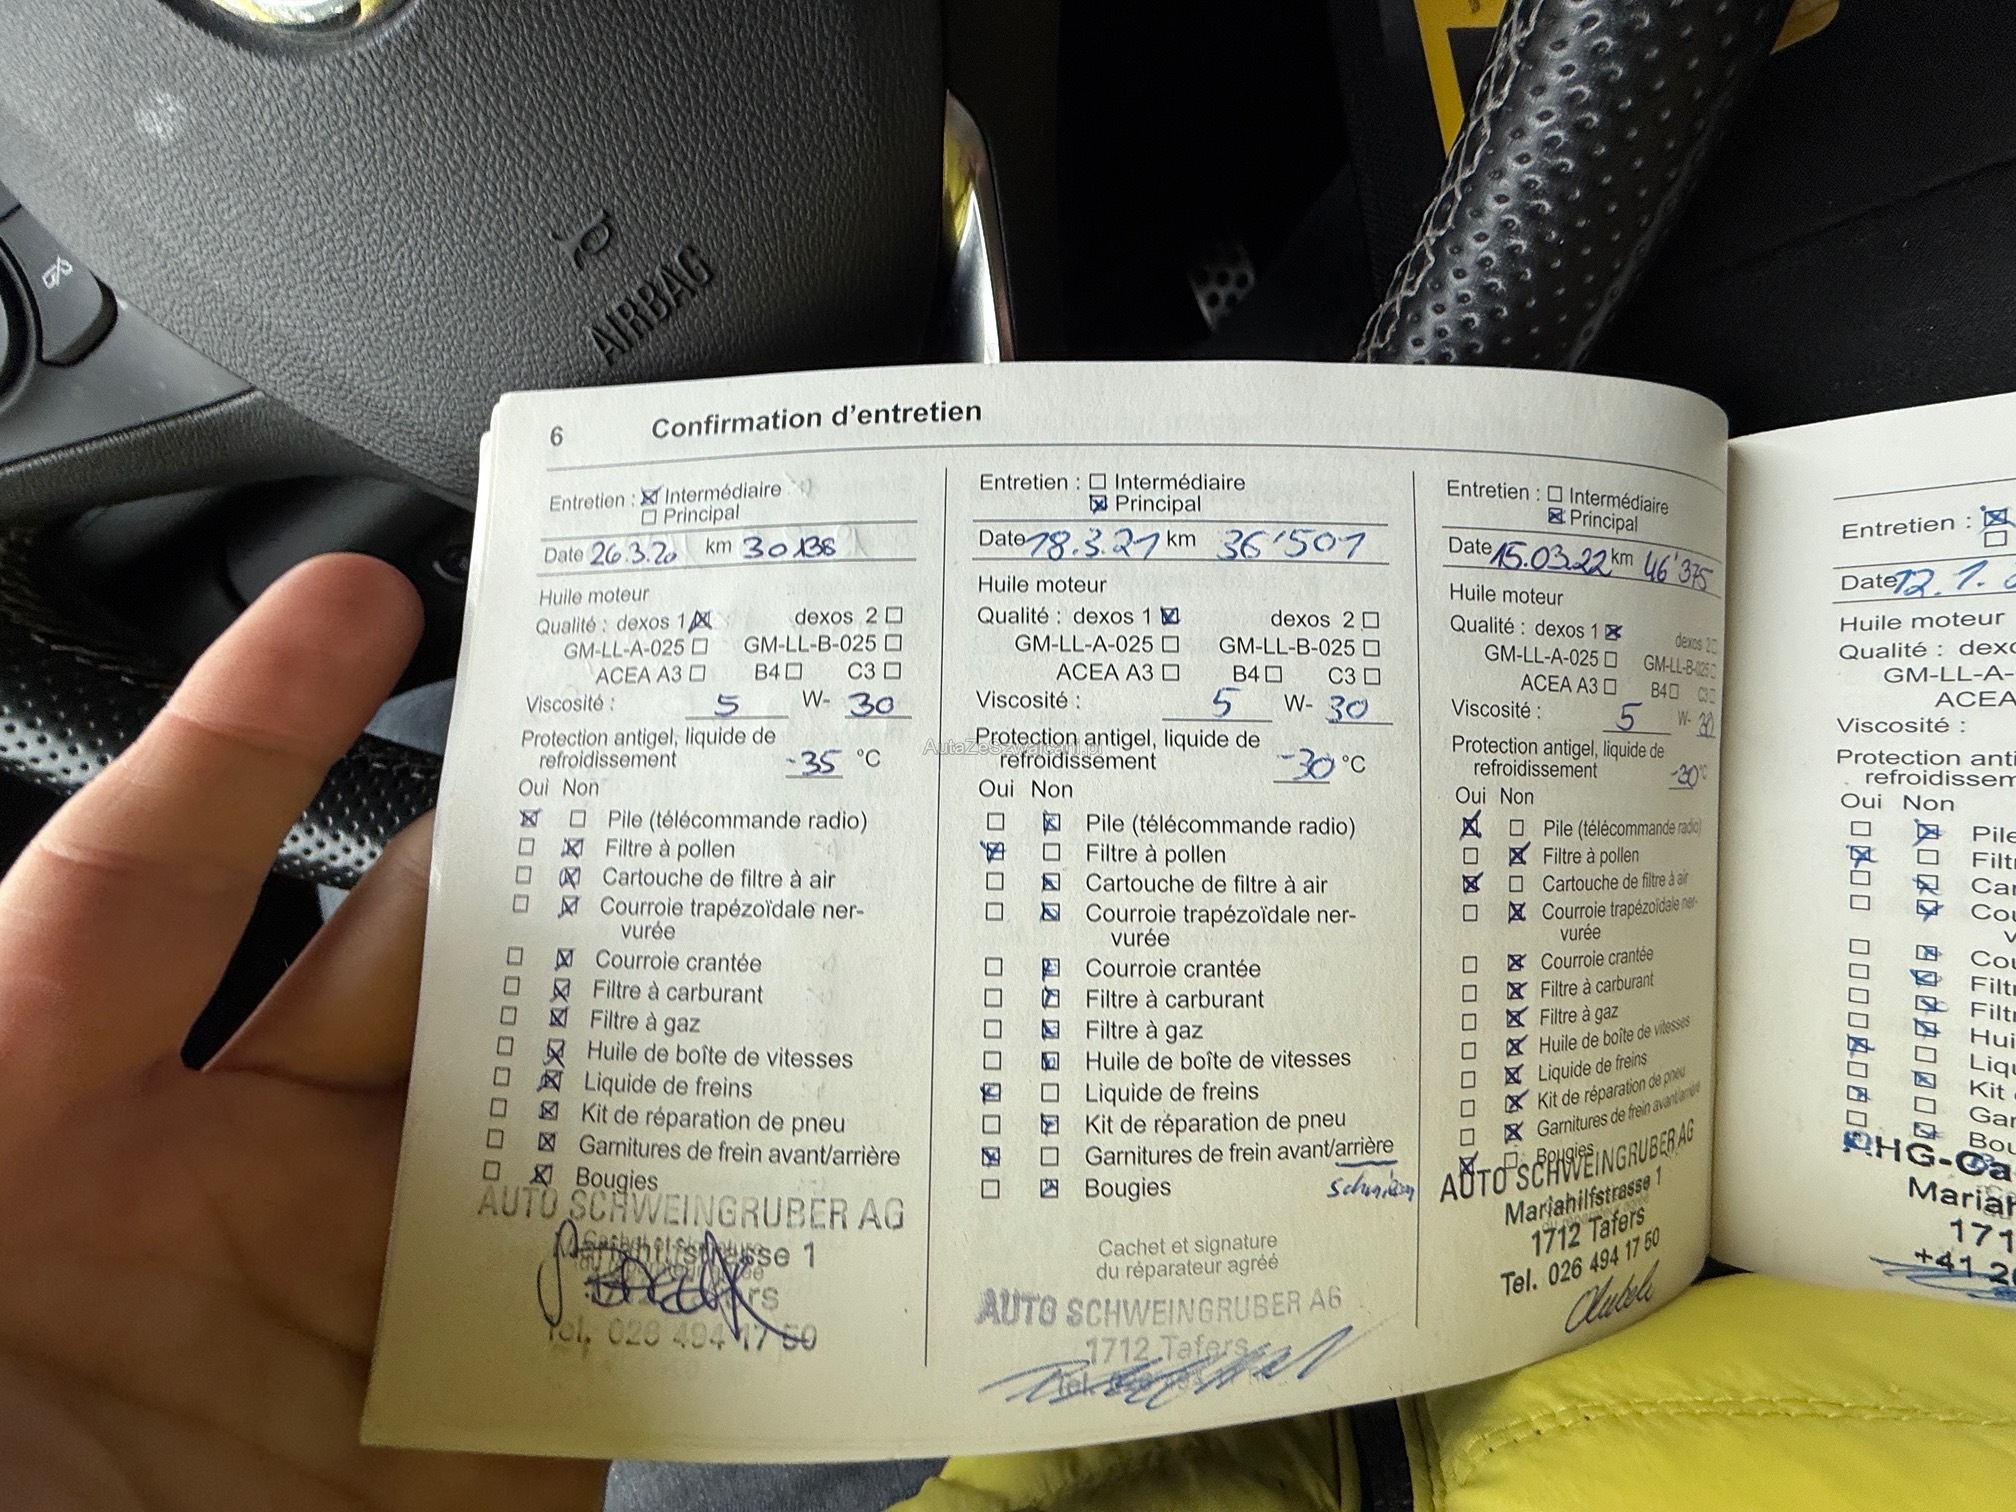 AIRBAG
6 Confirmation d'entretien
Entretien : ☒ Intermédiaire
☐ Principal
Date 26.3.20 km 30138
Huile moteur
Qualité : dexos 1 ☒ dexos 2 ☐
GM-LL-A-025 ☐ GM-LL-B-025 ☐
ACEA A3 ☐ B4 ☐ C3 ☐
Viscosité : 5 W- 30
Protection antigel, liquide de
refroidissement -35 °C
Oui Non
☒ ☐ Pile (télécommande radio)
☐ ☒ Filtre à pollen
☐ ☒ Cartouche de filtre à air
☐ ☒ Courroie trapézoïdale ner-
vurée
☐ ☒ Courroie crantée
☐ ☒ Filtre à carburant
☐ ☒ Filtre à gaz
☐ ☒ Huile de boîte de vitesses
☐ ☒ Liquide de freins
☐ ☒ Kit de réparation de pneu
☐ ☒ Garnitures de frein avant/arrière
☐ ☒ Bougies
AUTO SCHWEINGRUBER AG
Mariahilfstrasse 1
1712 Tafers
Tel. 026 494 17 50
Entretien : ☐ Intermédiaire
☒ Principal
Date 18.3.21 km 36'501
Huile moteur
Qualité : dexos 1 ☒ dexos 2 ☐
GM-LL-A-025 ☐ GM-LL-B-025 ☐
ACEA A3 ☐ B4 ☐ C3 ☐
Viscosité : 5 W- 30
Protection antigel, liquide de
refroidissement -30 °C
Oui Non
☐ ☒ Pile (télécommande radio)
☒ ☐ Filtre à pollen
☐ ☒ Cartouche de filtre à air
☐ ☒ Courroie trapézoïdale ner-
vurée
☐ ☒ Courroie crantée
☐ ☒ Filtre à carburant
☐ ☒ Filtre à gaz
☐ ☒ Huile de boîte de vitesses
☒ ☐ Liquide de freins
☐ ☒ Kit de réparation de pneu
☒ ☐ Garnitures de frein avant/arrière
☐ ☒ Bougies
Cachet et signature
du réparateur agréé
AUTO SCHWEINGRUBER AG
1712 Tafers
Tel.
Entretien : ☐ Intermédiaire
☒ Principal
Date 15.03.22 km 46'375
Huile moteur
Qualité : dexos 1 ☒ dexos 2 ☐
GM-LL-A-025 ☐ GM-LL-B-025 ☐
ACEA A3 ☐ B4 ☐ C3 ☐
Viscosité : 5 W- 30
Protection antigel, liquide de
refroidissement -30 °C
Oui Non
☒ ☐ Pile (télécommande radio)
☐ ☒ Filtre à pollen
☒ ☐ Cartouche de filtre à air
☐ ☒ Courroie trapézoïdale ner-
vurée
☐ ☒ Courroie crantée
☐ ☒ Filtre à carburant
☐ ☒ Filtre à gaz
☐ ☒ Huile de boîte de vitesses
☐ ☒ Liquide de freins
☐ ☒ Kit de réparation de pneu
☐ ☒ Garnitures de frein avant/arrière
☒ ☐ Bougies
AUTO SCHWEINGRUBER AG
Mariahilfstrasse 1
1712 Tafers
Tel. 026 494 17 50
Entretien : ☒
☐
Date 12.1.
Huile moteur
Qualité : dexo
GM-LL-A-
ACEA
Viscosité :
Protection anti
refroidissem
Oui Non
☐ ☒ Pile
☒ ☐ Filt
☐ ☒ Car
☐ ☒ Cou
v
☐ ☒ Cou
☐ ☒ Filt
☐ ☒ Filt
☐ ☒ Hui
☒ ☐ Liq
☐ ☒ Kit
☒ ☐ Gar
☐ ☒ Bou
HG-Ca
Mariah
171
+41 2
AutaZeSzwajcarii.pl